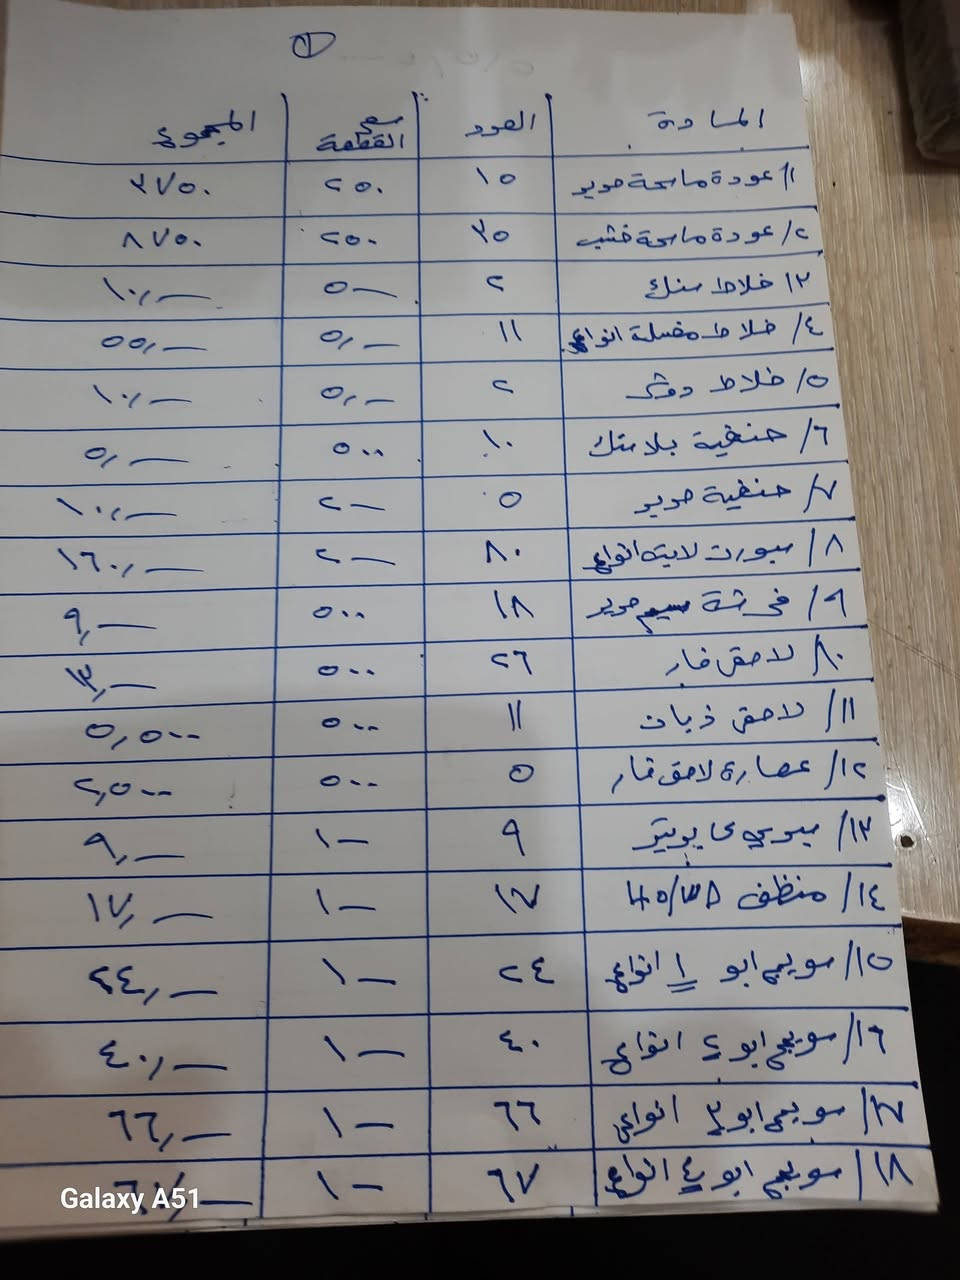 ١
المادة العدد سعر القطعة المجموع
١/ عودة ماسحة حديد ١٥ ٢٥٠ ٣٧٥٠
٢/ عودة ماسحة خشب ٣٥ ٢٥٠ ٨٧٥٠
٣/ خلاط سنك ٢ ٥ـــ ١٠,ـــ
٤/ خلاط مغسلة انواع ١١ ٥,ـــ ٥٥,ـــ
٥/ خلاط دوش ٢ ٥,ـــ ١٠,ـــ
٦/ حنفية بلاستك ١٠ ٥٠٠ ٥,ـــ
٧/ حنفية حديد ٥ ٢ـــ ١٠,ـــ
٨/ سبورت لايت انواع ٨٠ ٢ـــ ١٦٠,ـــ
٩/ فرشة سيم حديد ١٨ ٥٠٠ ٩,ـــ
١٠/ لاصق فار ٢٦ ٥٠٠ ١٣,ـــ
١١/ لاصق ذبان ١١ ٥٠٠ ٥,٥٠٠
١٢/ عصارة لاصق فار ٥ ٥٠٠ ٢,٥٠٠
١٣/ ٩ ١ـــ ٩,ـــ
١٤/ منظف ١٧ ١ـــ ١٧,ـــ
١٥/ سويج ابو ١ انواع ٢٤ ١ـــ ٢٤,ـــ
١٦/ سويج ابو ٢ انواع ٤٠ ١ـــ ٤٠,ـــ
١٧/ سويج ابو ٣ انواع ٦٦ ١ـــ ٦٦,ـــ
١٨/ سويج ابو ٤ انواع ٦٧ ١ـــ ٦٧,ـــ
Galaxy A51